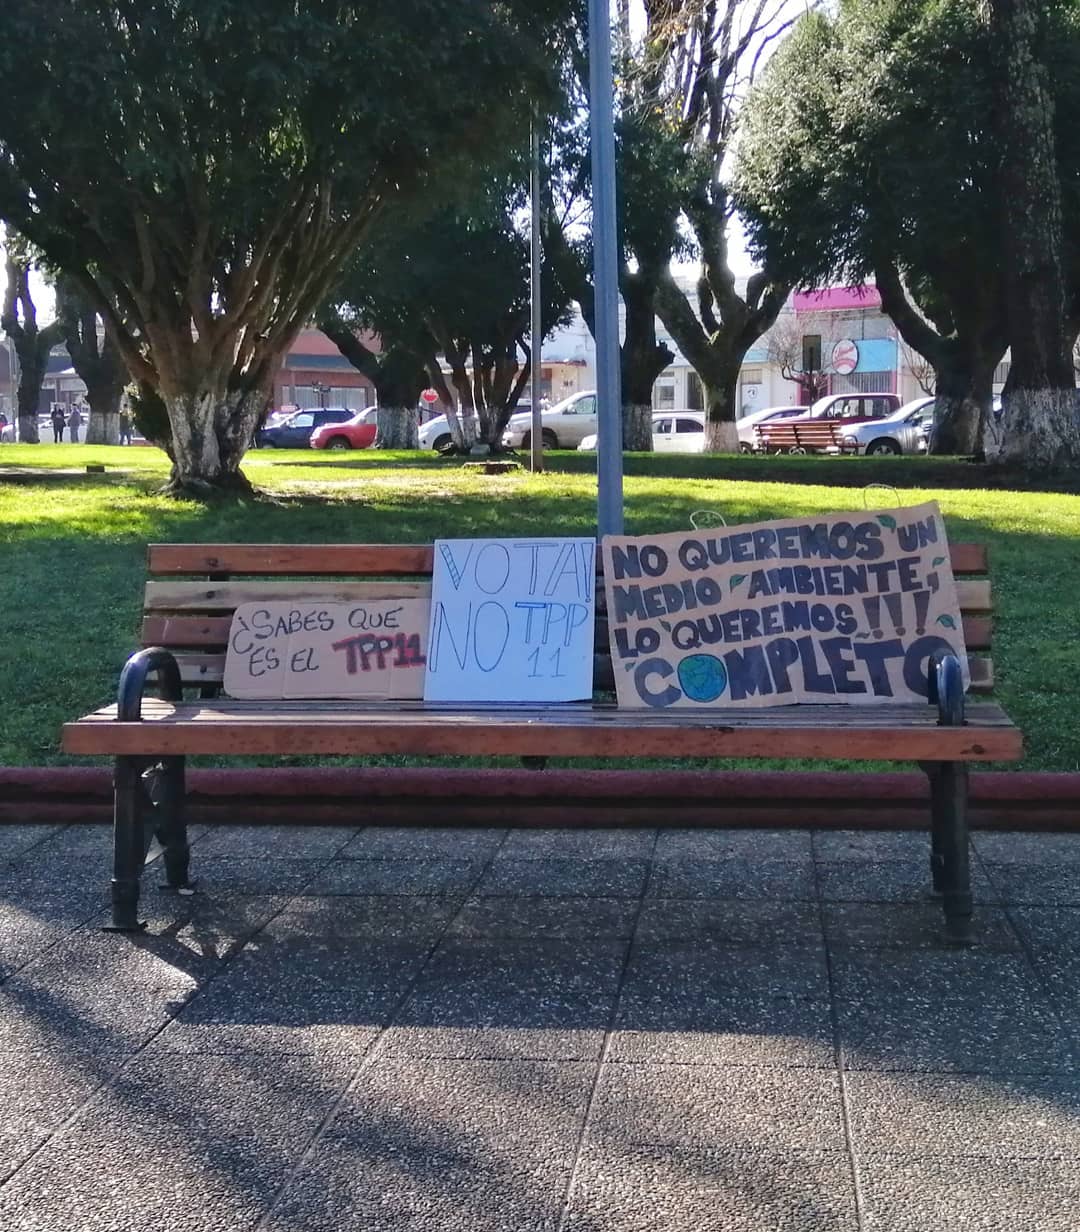 ¿SABES QUE
ES EL TPP11
VOTA!
NO TPP
11
NO QUEREMOS UN
MEDIO AMBIENTE,
LO QUEREMOS!!!
COMPLETO